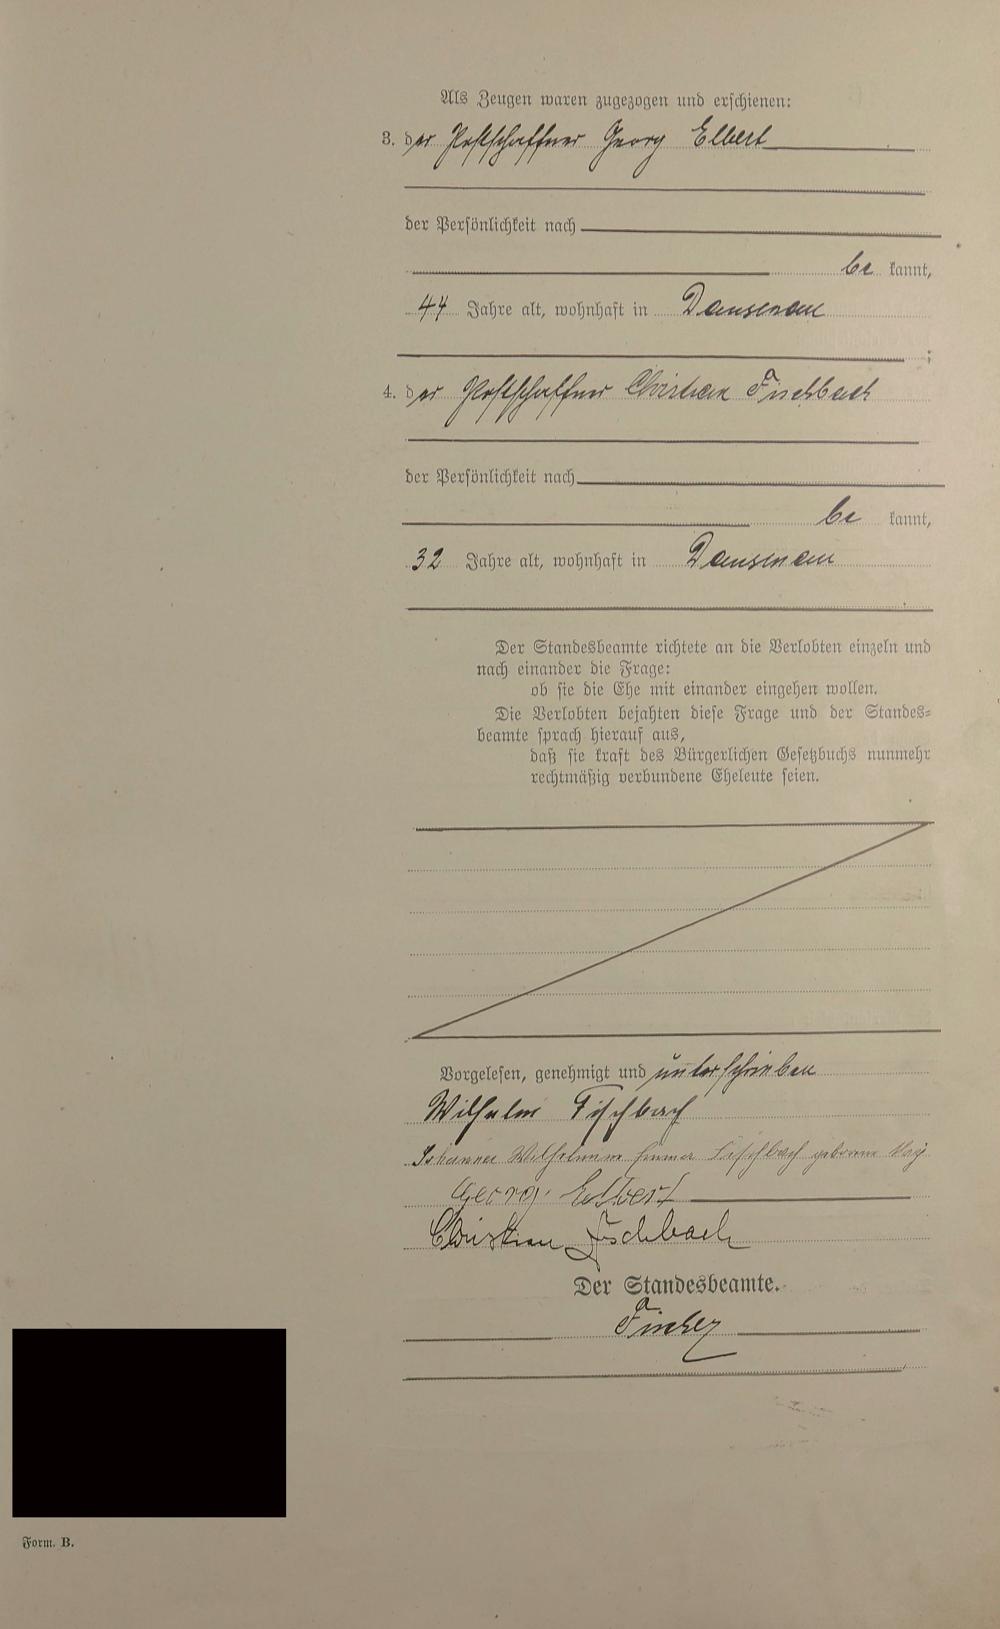 Als Zeugen waren zugezogen und erschienen:
3. der Postschaffner Georg Elbert
der Persönlichkeit nach
be kannt,
44 Jahre alt, wohnhaft in Dausenau
;
4. der Postschaffner Christian Fischbach
der Persönlichkeit nach
be kannt,
32 Jahre alt, wohnhaft in Dausenau
.
Der Standesbeamte richtete an die Verlobten einzeln und
nach einander die Frage:
ob sie die Ehe mit einander eingehen wollen.
Die Verlobten bejahten diese Frage und der Standes=
beamte sprach hierauf aus,
daß sie kraft des Bürgerlichen Gesetzbuchs nunmehr
rechtmäßig verbundene Eheleute seien.
Vorgelesen, genehmigt und unterschrieben
Wilhelm Fischbach
Johanna Wilhelmine Fischbach geborene
Georg Elbert
Christian Fischbach
Der Standesbeamte.
Form. B.